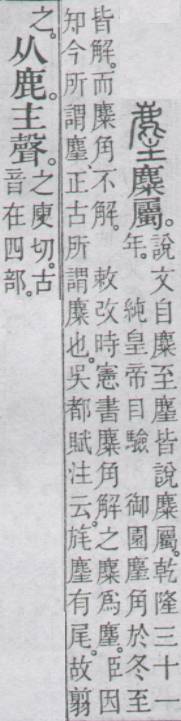 麈麋屬。說文自麋至麈皆說麋屬。乾隆三十一
年。　純皇帝目驗　御園麈角於冬至
皆解。而麋角不解。　敕改時憲書麋角解之麋爲麈。臣因
知今所謂麈。正古所謂麋也。吳都賦注云。旄麈有尾。故翦
之。从鹿。主聲。之庾切。古
音在四部。